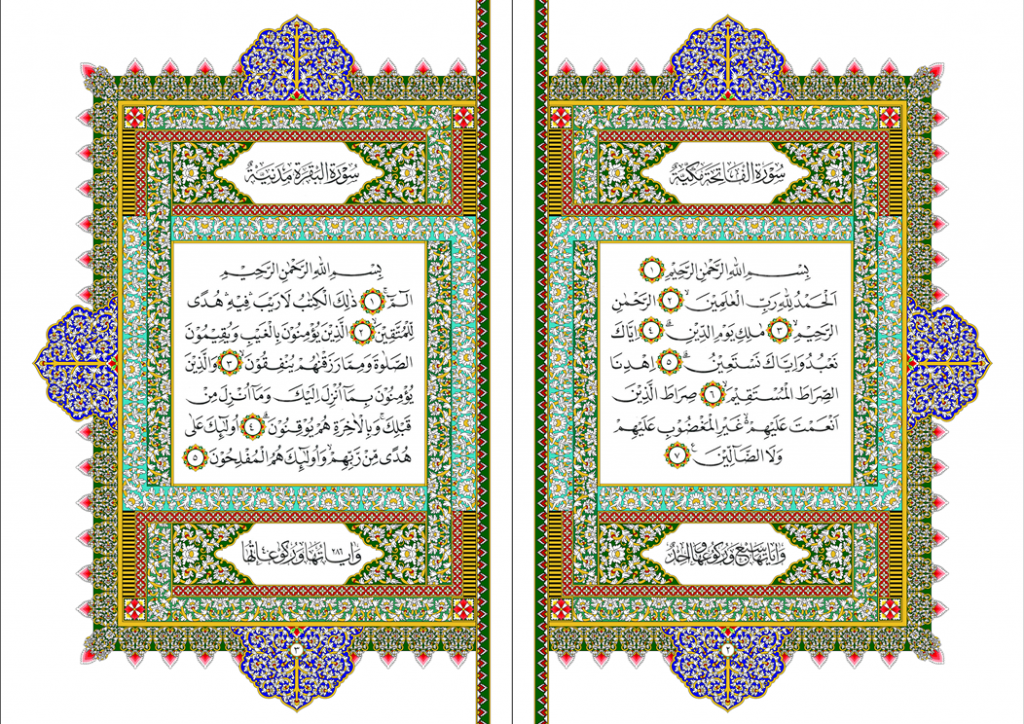 سُوْرَةُ الْفَاتِحَةِ مَكِّيَّةٌ
بِسْمِ اللهِ الرَّحْمٰنِ الرَّحِيْمِ ١
اَلْحَمْدُ لِلّٰهِ رَبِّ الْعٰلَمِيْنَۙ ٢ الرَّحْمٰنِ
الرَّحِيْمِۙ ٣ مٰلِكِ يَوْمِ الدِّيْنِۗ ٤ اِيَّاكَ
نَعْبُدُ وَاِيَّاكَ نَسْتَعِيْنُۗ ٥ اِهْدِنَا
الصِّرَاطَ الْمُسْتَقِيْمَۙ ٦ صِرَاطَ الَّذِيْنَ
اَنْعَمْتَ عَلَيْهِمْۙ غَيْرِ الْمَغْضُوْبِ عَلَيْهِمْ
وَلَا الضَّاۤلِّيْنَ ࣖ ٧
وَاٰيَاتُهَا سَبْعٌ وَرُكُوْعُهَا وَاحِدٌ
٢
سُوْرَةُ الْبَقَرَةِ مَدَنِيَّةٌ
بِسْمِ اللهِ الرَّحْمٰنِ الرَّحِيْمِ
الۤمّۤۚ ١ ذٰلِكَ الْكِتٰبُ لَا رَيْبَۛ فِيْهِۛ هُدًى
لِّلْمُتَّقِيْنَۙ ٢ الَّذِيْنَ يُؤْمِنُوْنَ بِالْغَيْبِ وَيُقِيْمُوْنَ
الصَّلٰوةَ وَمِمَّا رَزَقْنٰهُمْ يُنْفِقُوْنَۙ ٣ وَالَّذِيْنَ
يُؤْمِنُوْنَ بِمَآ اُنْزِلَ اِلَيْكَ وَمَآ اُنْزِلَ مِنْ
قَبْلِكَۚ وَبِالْاٰخِرَةِ هُمْ يُوْقِنُوْنَۗ ٤ اُولٰۤىِٕكَ عَلٰى
هُدًى مِّنْ رَّبِّهِمْۙ وَاُولٰۤىِٕكَ هُمُ الْمُفْلِحُوْنَ ٥
وَاٰيَاتُهَا ٢٨٦ وَرُكُوْعَاتُهَا
٣